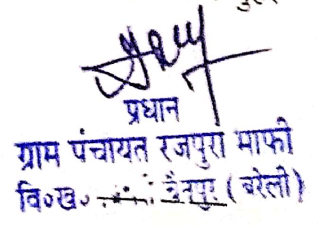 प्रधान
ग्राम पंचायत रजपुरा माफी
वि०ख० (बरेली)